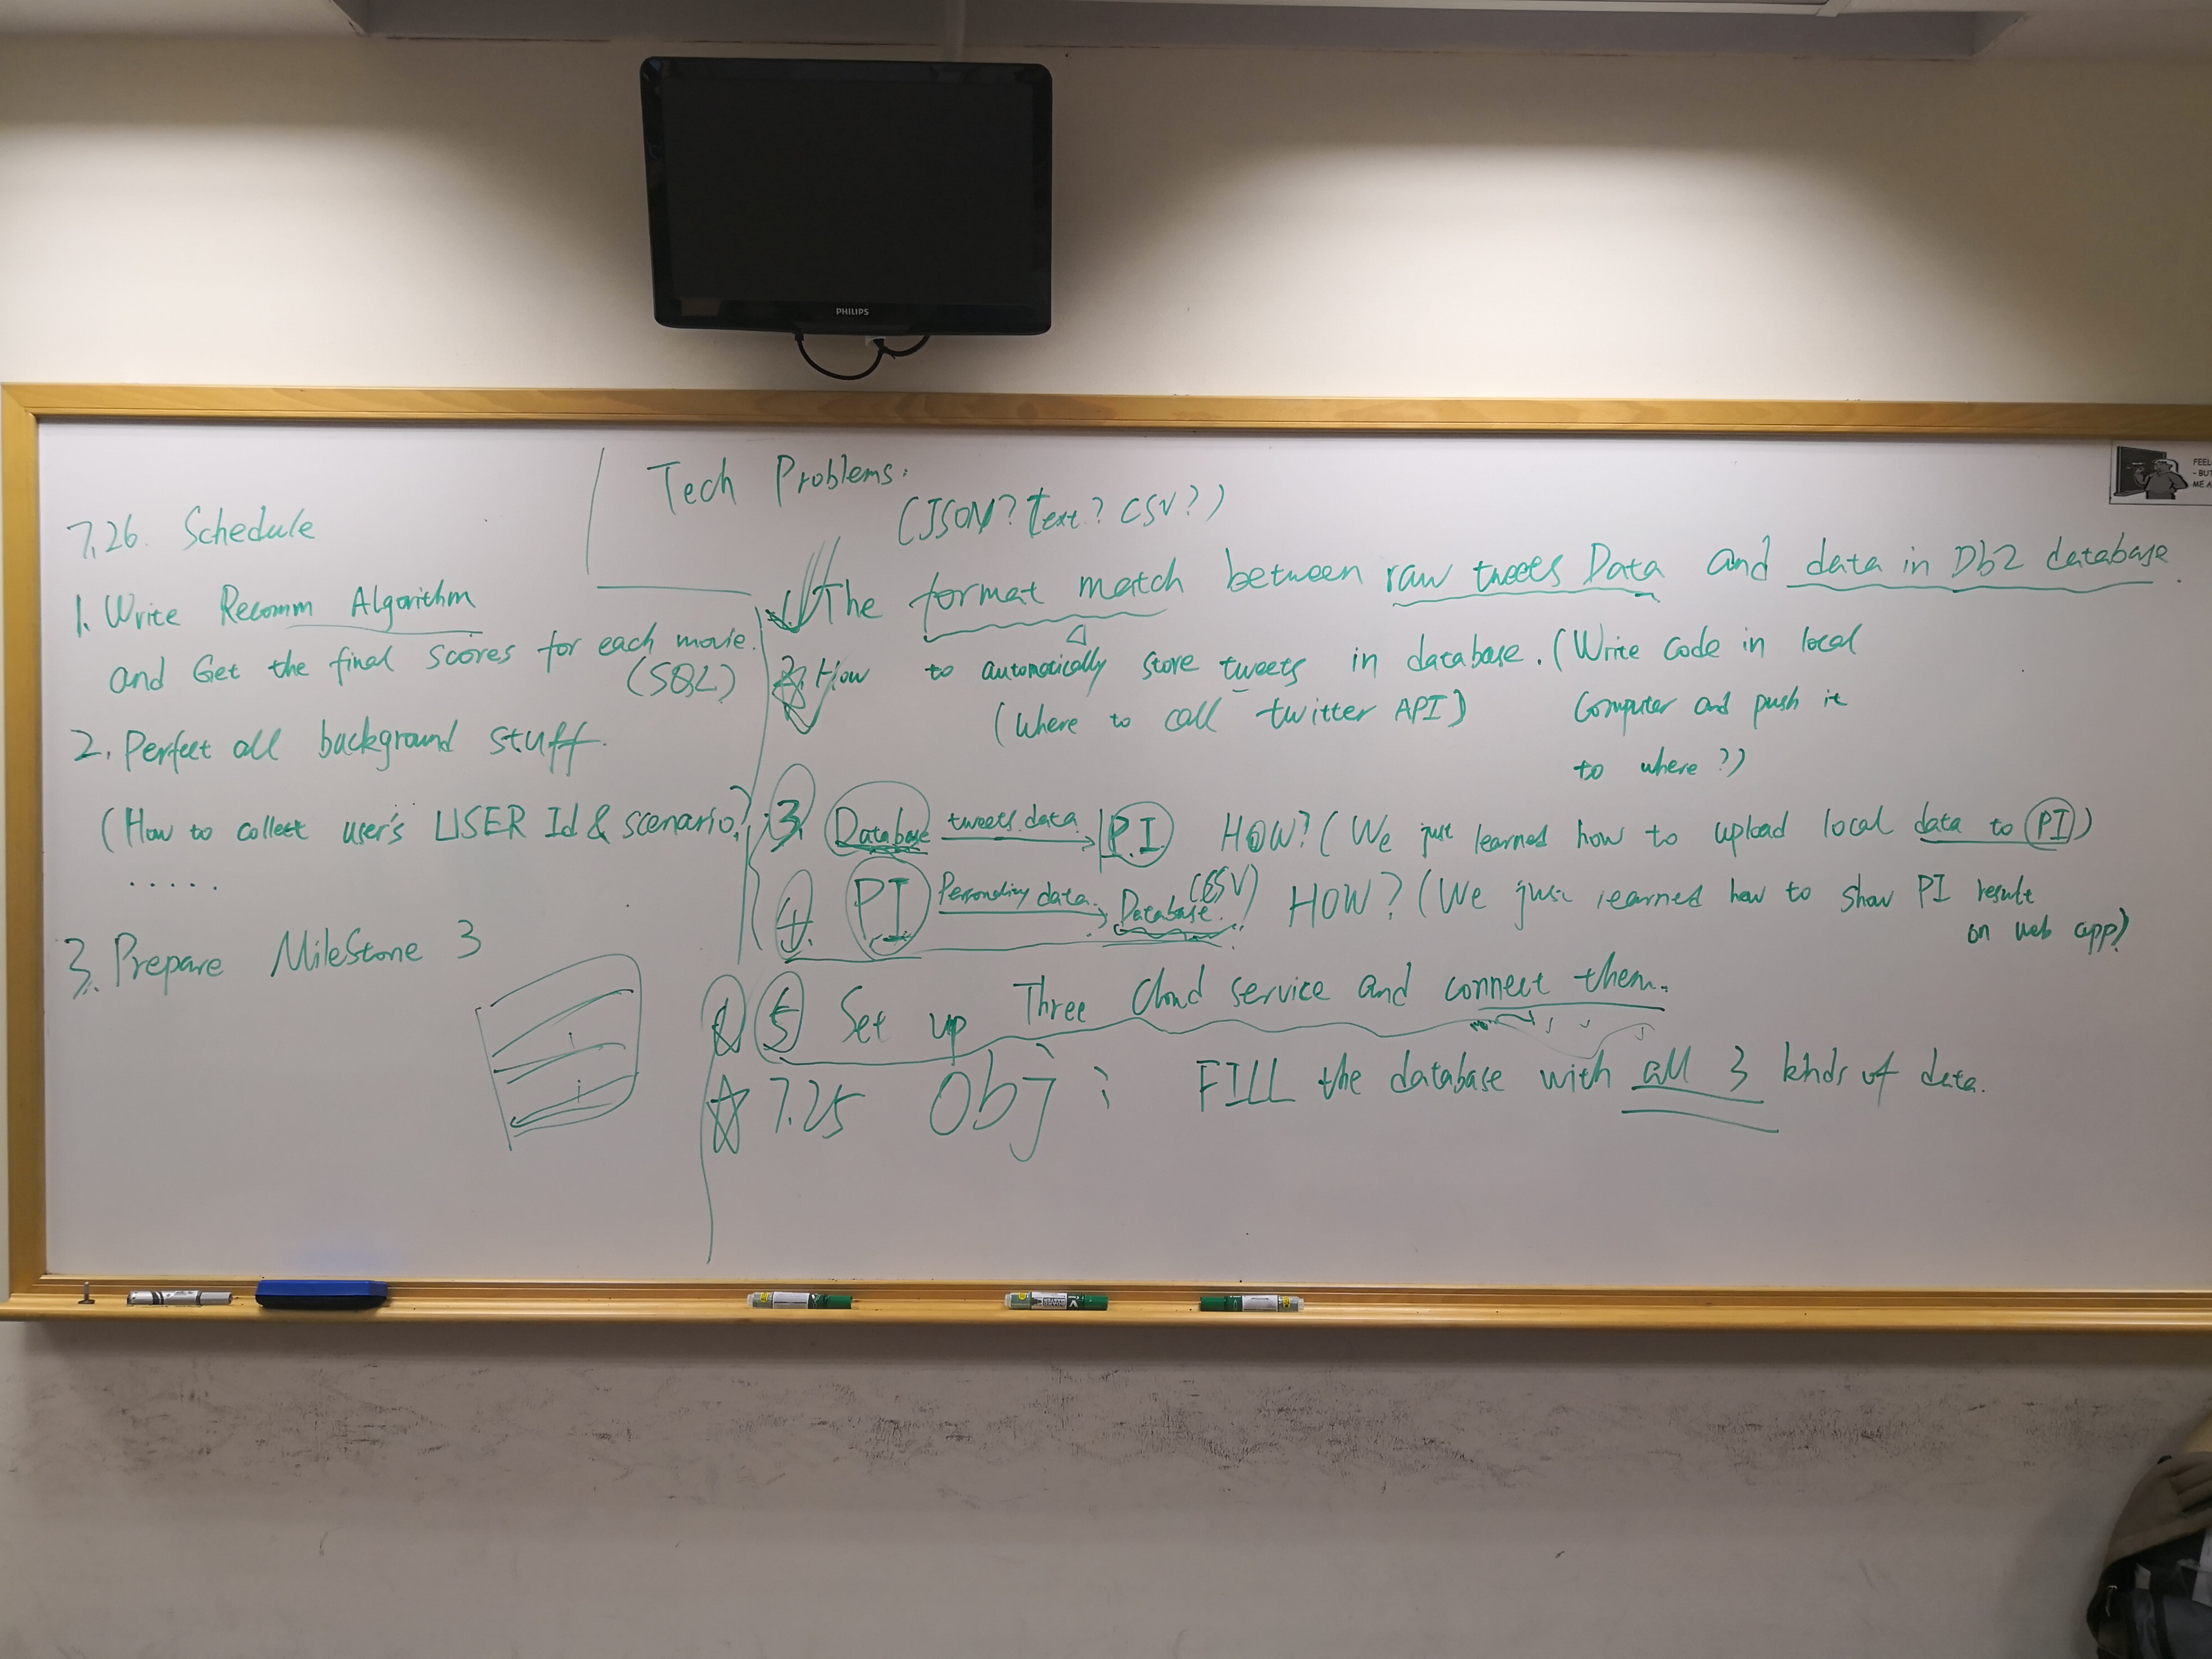 PHILIPS
FEEL
- BUT
ME A
7.26. Schedule
1. Write Recomm Algorithm
and Get the final scores for each movie.
(SQL)
2. Perfect all background stuff.
(How to collect user's USER Id & scenario?)
.....
3. Prepare MileStone 3
Tech Problems:
(JSON? Text? CSV?)
1. The format match between raw tweets Data and data in Db2 database.
2. How to automatically store tweets in database. (Write code in local
(Where to call twitter API) Computer and push it
to where?)
3. Database tweets data PI HOW? (We just learned how to upload local data to PI)
4. PI Personality data Database. (CSV) HOW? (We just learned how to show PI result
on web app)
5 Set up Three Cloud service and connect them.
☆ 7.25 Obj: FILL the database with all 3 kinds of data.